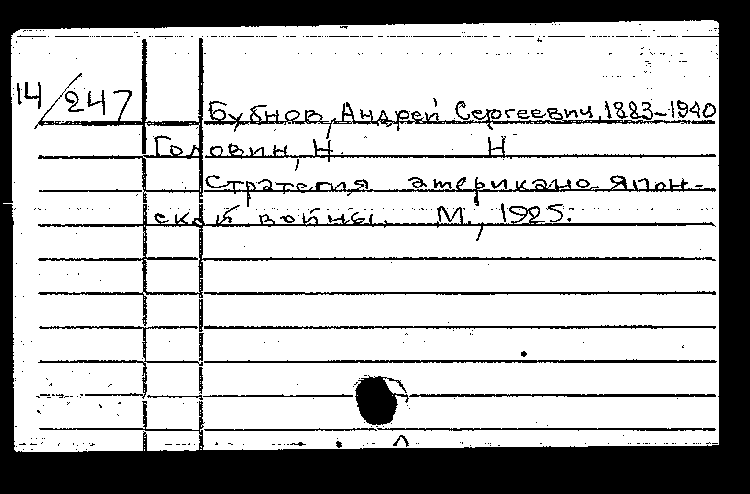 14/247
Бубнов, Андрей Сергеевич, 1883-1940
Головин, Н. Н
Стратегия американо-япон-
ской войны. М., 1925.